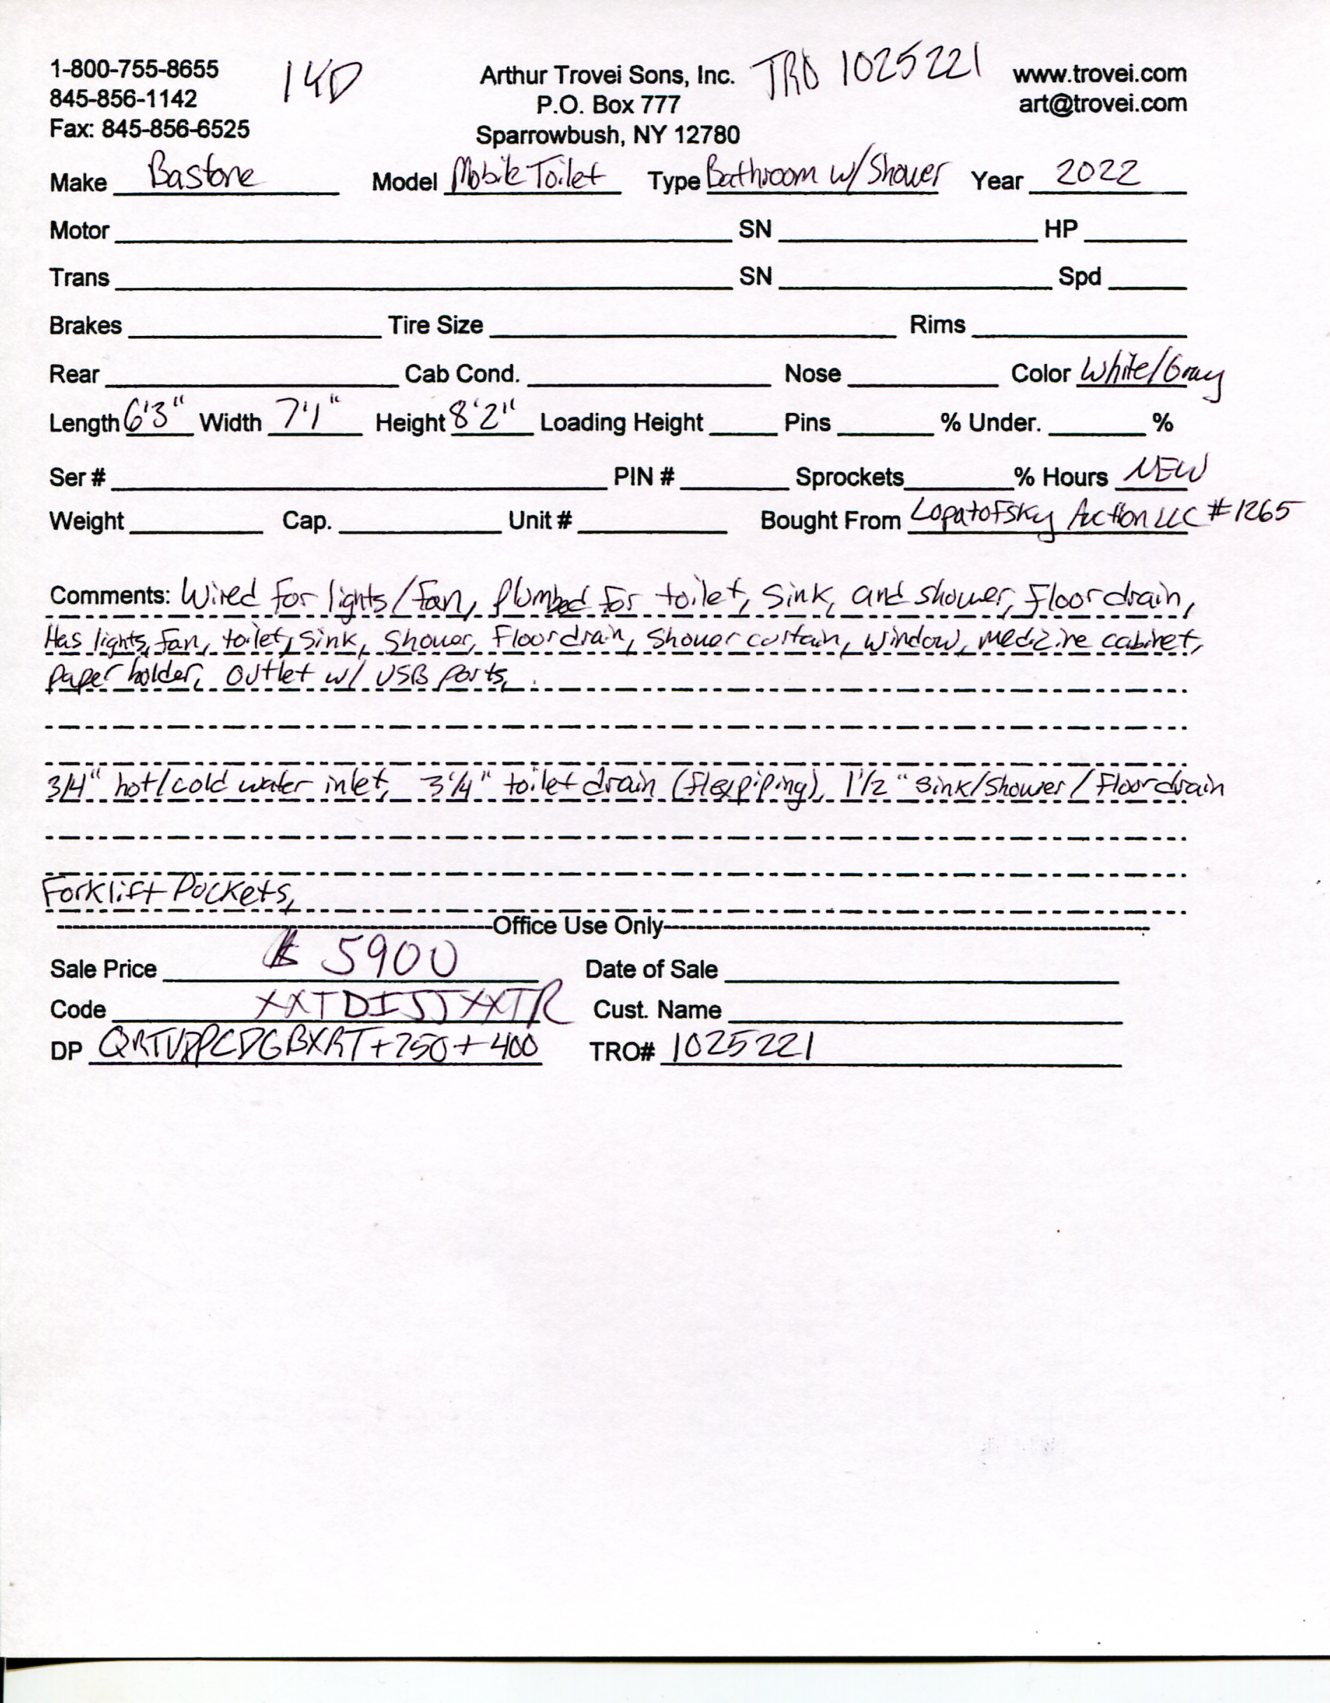 1-800-755-8655 Arthur Trovei Sons, Inc. TRO 1025221 www.trovei.com
845-856-1142 P.O. Box 777 art@trovei.com
Fax: 845-856-6525 Sparrowbush, NY 12780
Make Bastone Model Mobile Toilet Type Bathroom w/ Shower Year 2022
Motor SN HP
Trans SN Spd
Brakes Tire Size Rims
Rear Cab Cond. Nose Color White/Gray
Length 6'3" Width 7'1" Height 8'2" Loading Height Pins % Under. %
Ser # PIN # Sprockets % Hours NEW
Weight Cap. Unit # Bought From Lopatofsky Auction LLC #1265
Comments: Wired for lights/fan, plumbed for toilet, sink, and shower, floor drain,
Has lights, fan, toilet, sink, shower, floor drain, shower curtain, window, medicine cabinet,
paper holder, outlet w/ USB ports,
3/4" hot/cold water inlet, 3 1/4" toilet drain (flex piping), 1 1/2" sink/shower/floor drain
Forklift Pockets,
Office Use Only
Sale Price $ 5900 Date of Sale
Code Cust. Name
DP +250+400 TRO# 1025221